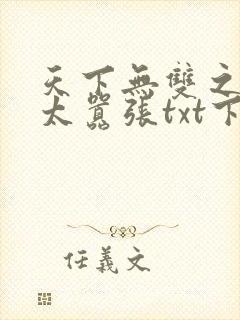 天下無雙之
太囂張txt下
任義文